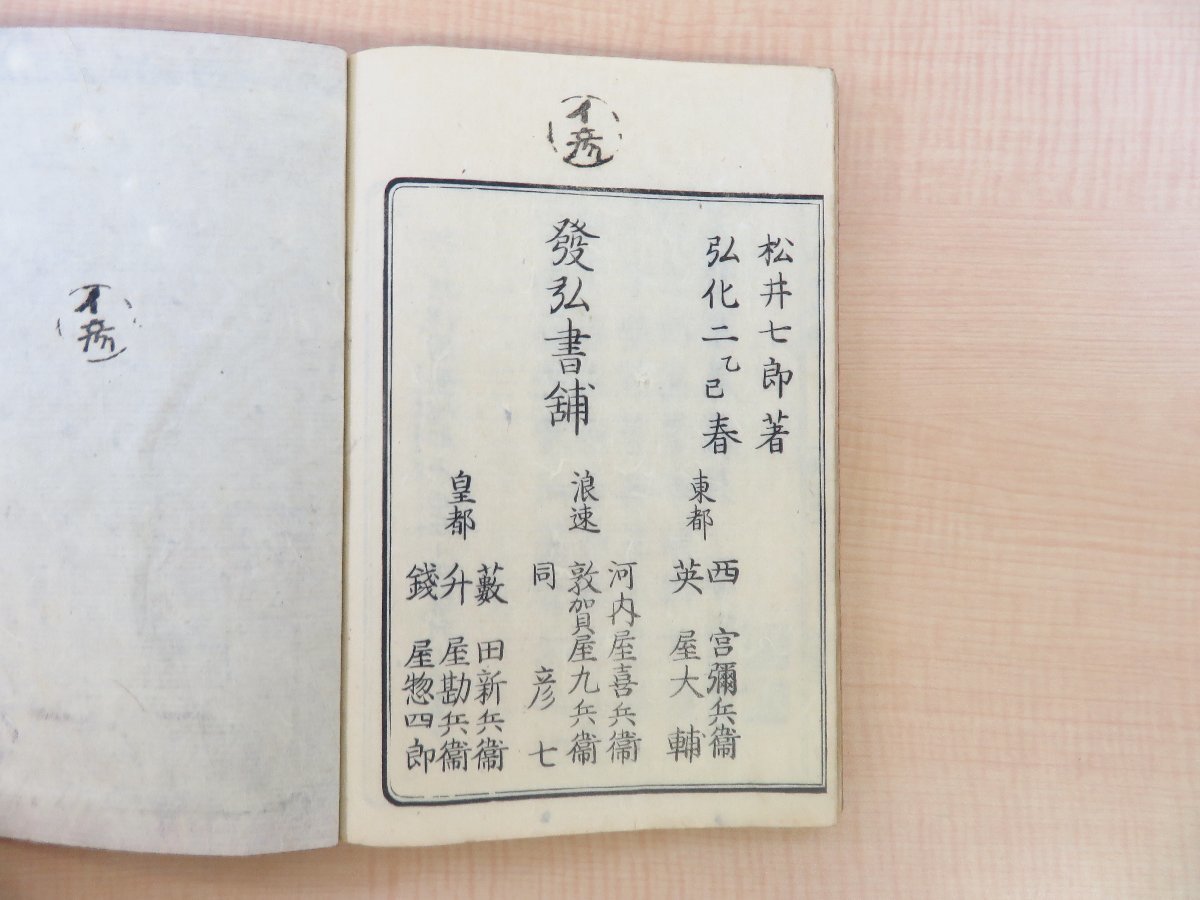 松井七郎著
弘化二乙巳春
東都
西宮彌兵衞
英屋大輔
發弘書舖
浪速
河内屋喜兵衞
敦賀屋九兵衞
同彦七
皇都
藪田新兵衞
升屋勘兵衞
錢屋惣四郎
イ彦
イ彦